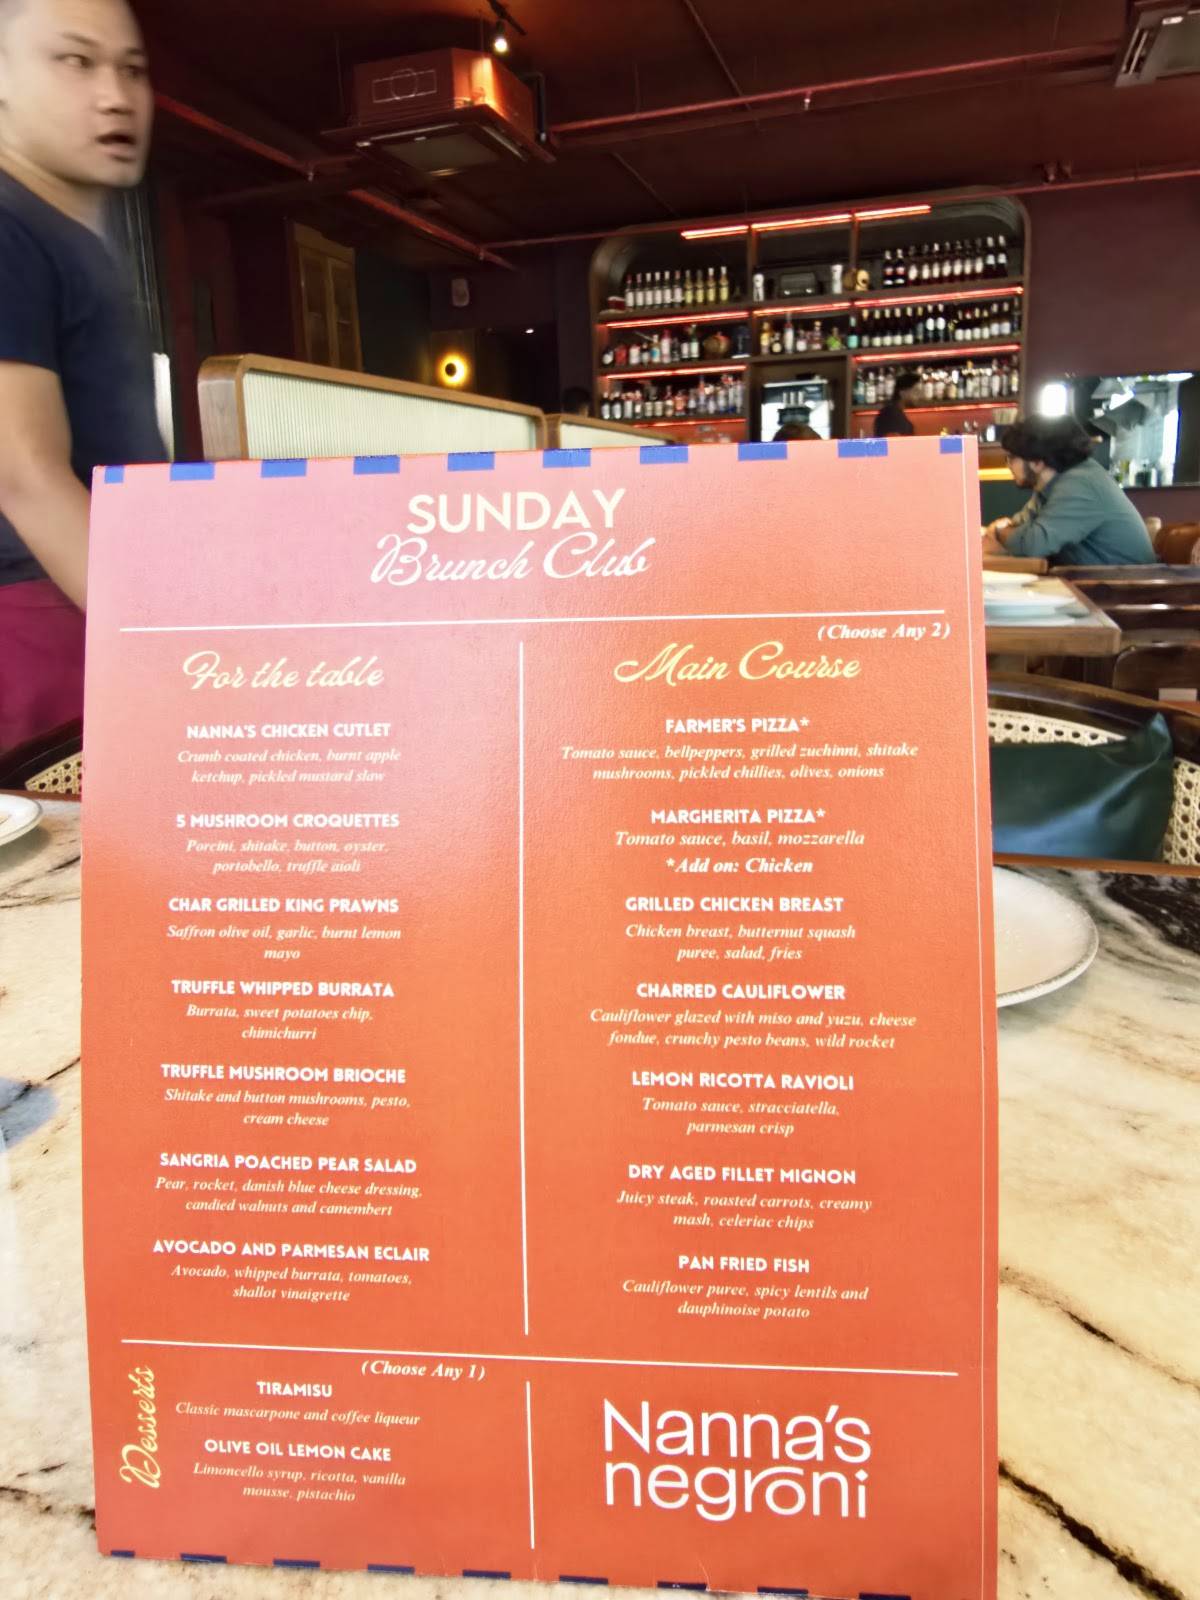 SUNDAY
Brunch Club
For the table
NANNA'S CHICKEN CUTLET
Crumb coated chicken, burnt apple
ketchup, pickled mustard slaw
5 MUSHROOM CROQUETTES
Porcini, shitake, button, oyster,
portobello, truffle aioli
CHAR GRILLED KING PRAWNS
Saffron olive oil, garlic, burnt lemon
mayo
TRUFFLE WHIPPED BURRATA
Burrata, sweet potatoes chip,
chimichurri
TRUFFLE MUSHROOM BRIOCHE
Shitake and button mushrooms, pesto,
cream cheese
SANGRIA POACHED PEAR SALAD
Pear, rocket, danish blue cheese dressing,
candied walnuts and camembert
AVOCADO AND PARMESAN ECLAIR
Avocado, whipped burrata, tomatoes,
shallot vinaigrette
(Choose Any 2)
Main Course
FARMER'S PIZZA*
Tomato sauce, bellpeppers, grilled zuchinni, shitake
mushrooms, pickled chillies, olives, onions
MARGHERITA PIZZA*
Tomato sauce, basil, mozzarella
*Add on: Chicken
GRILLED CHICKEN BREAST
Chicken breast, butternut squash
puree, salad, fries
CHARRED CAULIFLOWER
Cauliflower glazed with miso and yuzu, cheese
fondue, crunchy pesto beans, wild rocket
LEMON RICOTTA RAVIOLI
Tomato sauce, stracciatella,
parmesan crisp
DRY AGED FILLET MIGNON
Juicy steak, roasted carrots, creamy
mash, celeriac chips
PAN FRIED FISH
Cauliflower puree, spicy lentils and
dauphinoise potato
Desserts
(Choose Any 1)
TIRAMISU
Classic mascarpone and coffee liqueur
OLIVE OIL LEMON CAKE
Limoncello syrup, ricotta, vanilla
mousse, pistachio
Nanna's
negroni